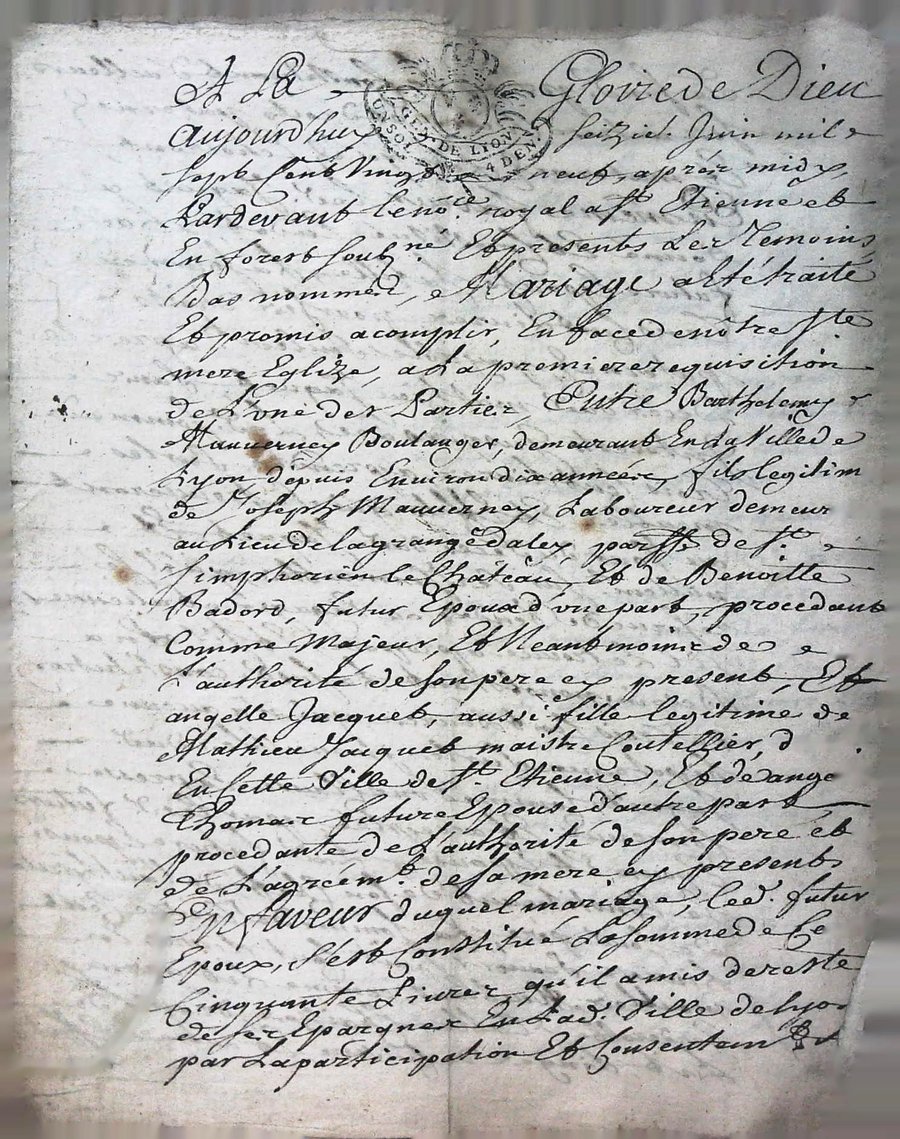 A La Gloire de Dieu
GEN. DE LION
UN SOL 4 DEN.
aujourdhuy seizie. Juin mil
sept Cent Vingt neuf, aprés midy
Pardevant le no.re royal a St. Etienne et
En forest soubz.né Et presents Les Temoins
Bas nommez, Mariage a Eté traité
Et promis acomplir, En face de nôtre Ste
mere Eglize, a La premiere requisition
de L'une des Parties, Entre Barthelemy
Mauverney Boulanger, demeurant En La Ville de
Lyon depuis Environ dix années, fils legitim
de Joseph Mauverney, Laboureur demeur
au Lieu de la grange dalex parsse. de St.
simphorien le Château, Et de Benoitte
Badord, futur Epoux d'vne part, procedant
Comme Majeur, Et Neantmoins de
L'authorité de son pere cy present, Et
angelle Jacquet, aussi fille legitime de
Mathieu Jacquet maistre Coutellier, d
En Cette Ville de St. Etienne, Et de ange
Thomas future Epouse d'autre part
procedante de L'authorité de son pere et
de L'agréemt. de sa mere cy presents
En faveur duquel mariage, led. futur
Epoux, s'est Constitué La somme de Ce
Cinquante Livres qu'il a mis de reste
de ses Epargnes En Lad. Ville de Lyo
par La participation Et Consentem.t